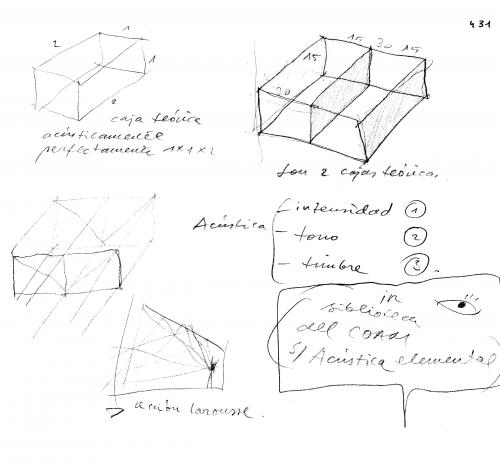 431
1
2
1
2
caja teórica
acústicamente
perfectamente 1x1x2
15 30 15
15
20
son 2 cajas teóricas.
Acústica
intensidad 1
- tono 2
- timbre 3.
ir
biblioteca
del COAM
s/ Acústica elemental
acción larousse.